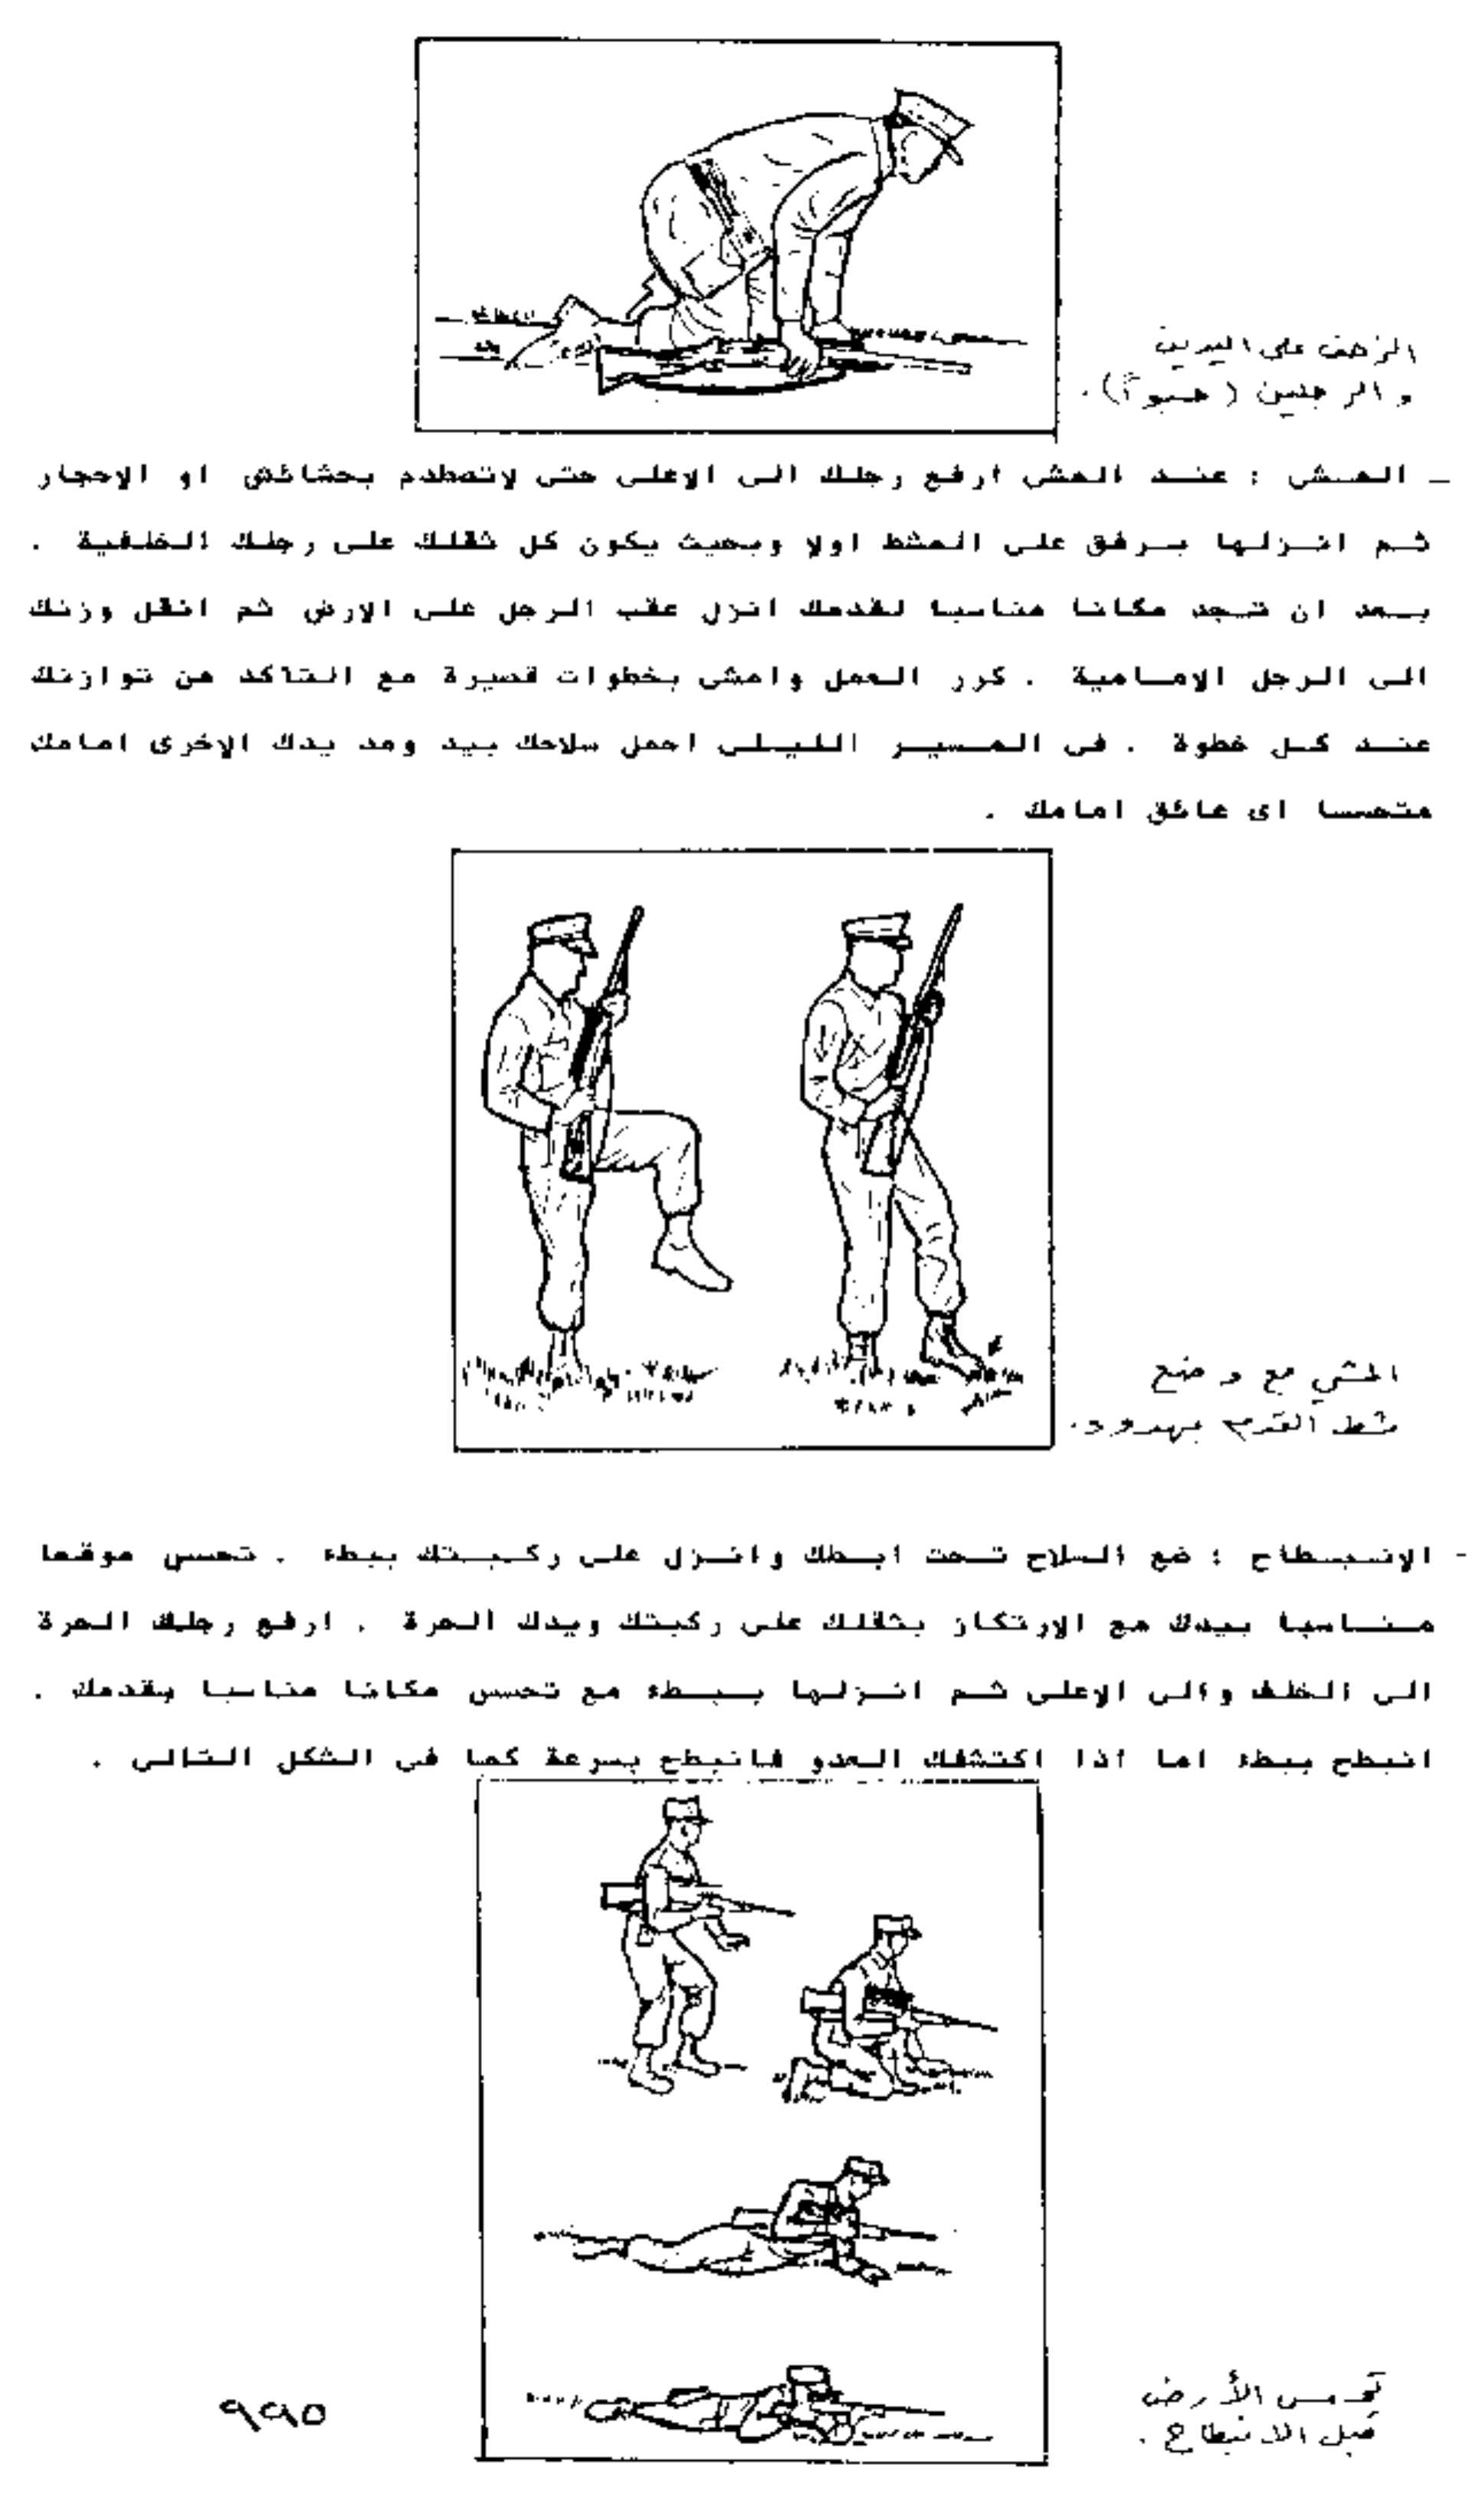 الزحف على اليدين
والرجلين (حبوا).
_ المشى : عند المشى ارفع رجلك الى الاعلى حتى لاتصطدم بحشائش او الاحجار
ثم انزلها برفق على المشط اولا وبحيث يكون كل ثقلك على رجلك الخلفية .
بعد ان تجد مكانا مناسبا لقدمك انزل عقب الرجل على الارض ثم انقل وزنك
الى الرجل الامامية . كرر العمل وامشى بخطوات قصيرة مع التاكد من توازنك
عند كل خطوة . فى المسير الليلى احمل سلاحك بيد ومد يدك الاخرى امامك
متحسسا اى عائق امامك .
المشي مع وضع
مشط القدم بهدوء.
- الانبطاح : ضع السلاح تحت ابطك وانزل على ركبتك ببطء . تحسس موقعا
مناسبا بيدك مع الارتكاز بثقلك على ركبتك ويدك الحرة . ارفع رجلك الحرة
الى الخلف والى الاعلى ثم انزلها ببطء مع تحسس مكانا مناسبا بقدمك .
انبطح ببطء اما اذا اكتشفك العدو فانبطح بسرعة كما فى الشكل التالى .
تحسس الأرض
قبل الانبطاح .
٩٩٥